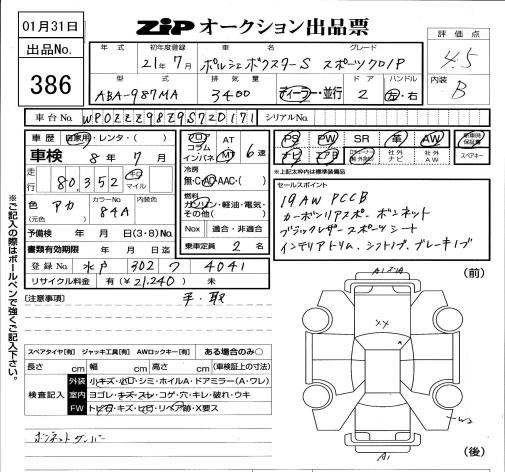 01月31日
出品No.
386
ZIP オークション出品票
評価点
4.5
内装
B
年式 初年度登録 車名 グレード
21年7月 ポルシェボクスターS スポーツクロノP
型式 排気量 ドア ハンドル
ABA-987MA 3400 ディーラー・並行 2 左・右
車台No. WP0ZZZ98Z9S720171 シリアルNo.
車歴 自家用・レンタ・( )
車検 8年7月
走行 80,352 キロ マイル
色 アカ カラーNo. 84A 内装色
(元色)
予備検 年 月 日(3・8)No.
書類有効期限 年 月 日迄
登録No. 水戸 302 フ 4041
リサイクル料金 有(¥21,240) 未
フロア コラム インパネ AT M 6速
冷房
無・C・AC・AAC・( )
燃料
ガソリン・軽油・電気・その他( )
Nox 適合・非適合
乗車定員 2名
PS PW SR 革 AW 新車時保証書
ナビ エアB 社外ナビ 社外AW スペアキー
※上記太枠内は標準装備品
セールスポイント
19AW PCCB
カーボンリアスポ- ボンネット
ブラックレザースポーツシート
インテリアトリム、シフトノブ、ブレーキノブ
[注意事項]
手・取
スペアタイヤ[有] ジャッキ工具[有] AWロックキー[有] ある場合のみ○
長さ cm 幅 cm 高さ cm (車検証上の寸法)
検査記入
外装 小キズ・小凹・シミ・ホイルA・ドアミラー(A・ワレ)
室内 ヨゴレ・キズ・スレ・コゲ・穴・キレ・破れ・ウキ
FW トビ石・キズ・ヒビ・リペア跡・X要ス
ボンネットダンパー
(前)
XX
W2
A1
(後)
※ご記入の際はボールペンで強くご記入下さい。